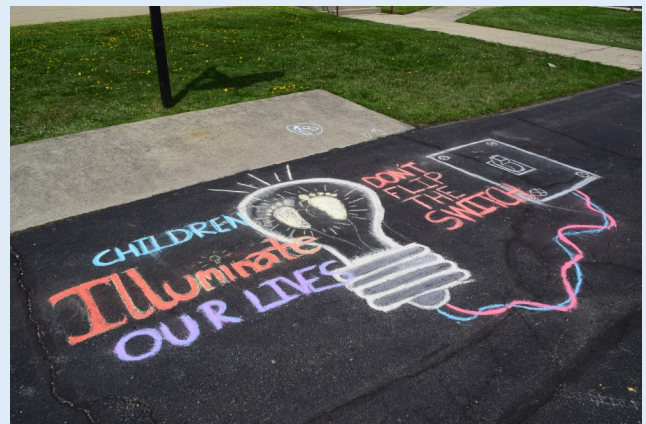 CHILDREN
Illuminate
OUR LIVES
DON'T
FLIP
THE
SWITCH